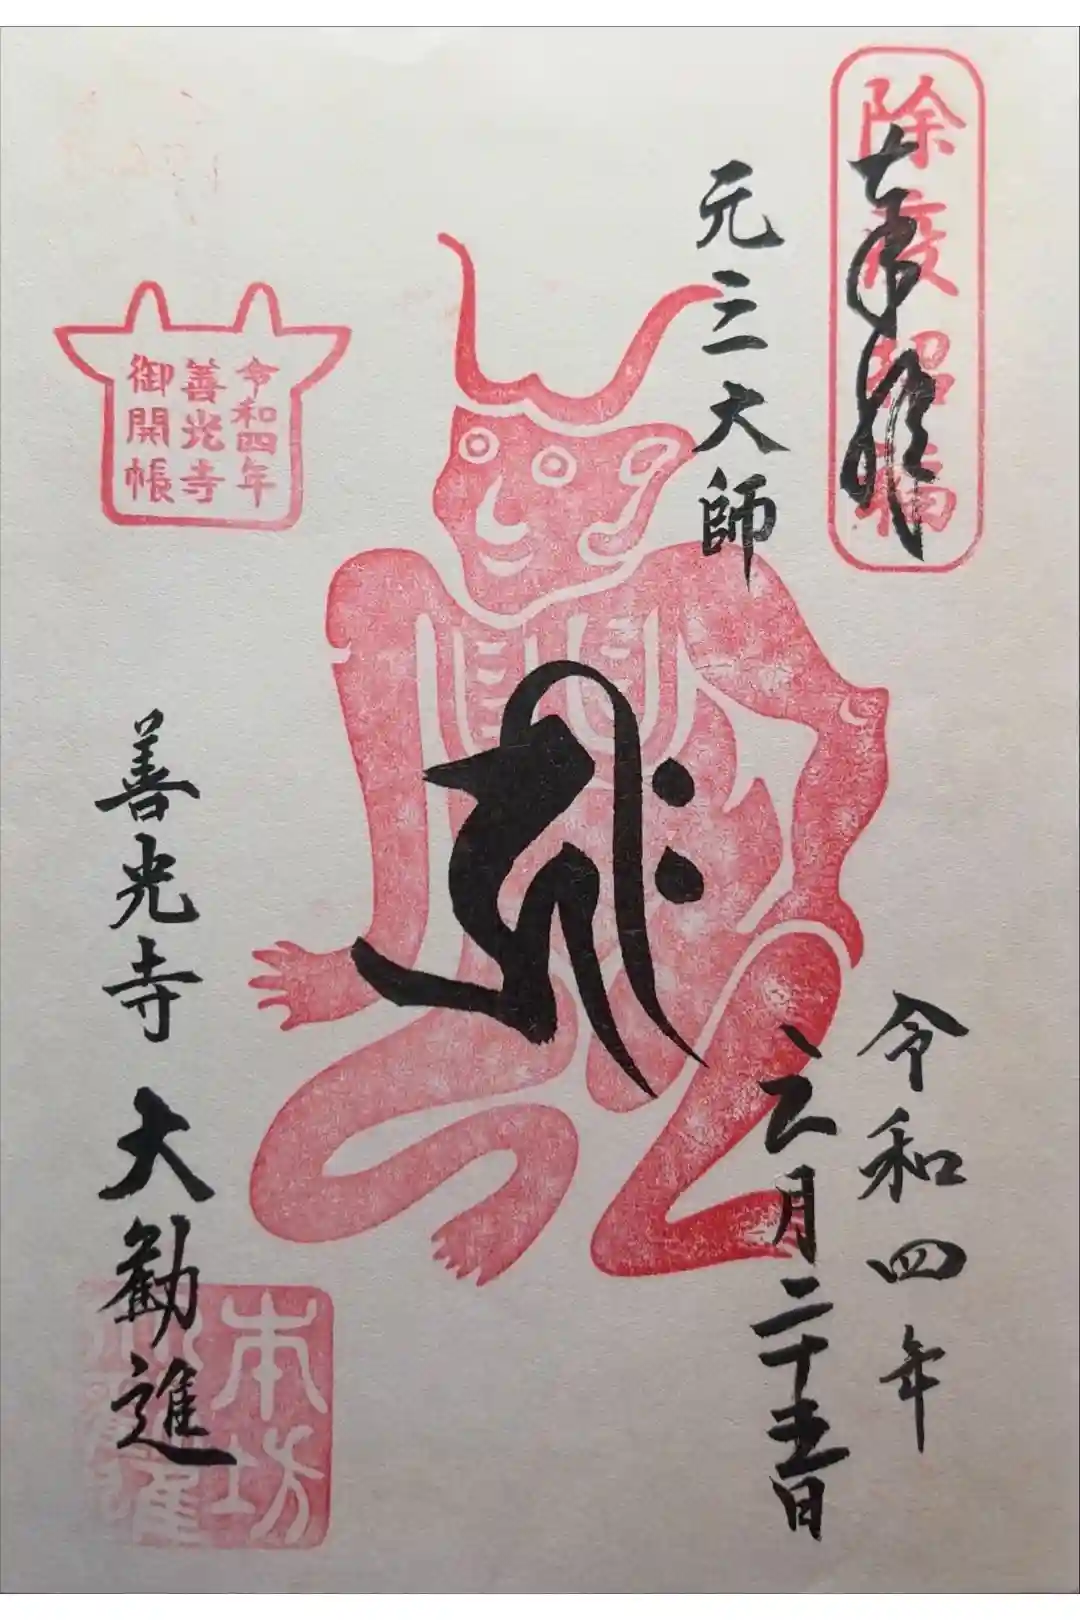 除疫招福
奉拝
元三大師
令和四年
善光寺
御開帳
令和四年
六月二十五日
善光寺 大勧進
本坊